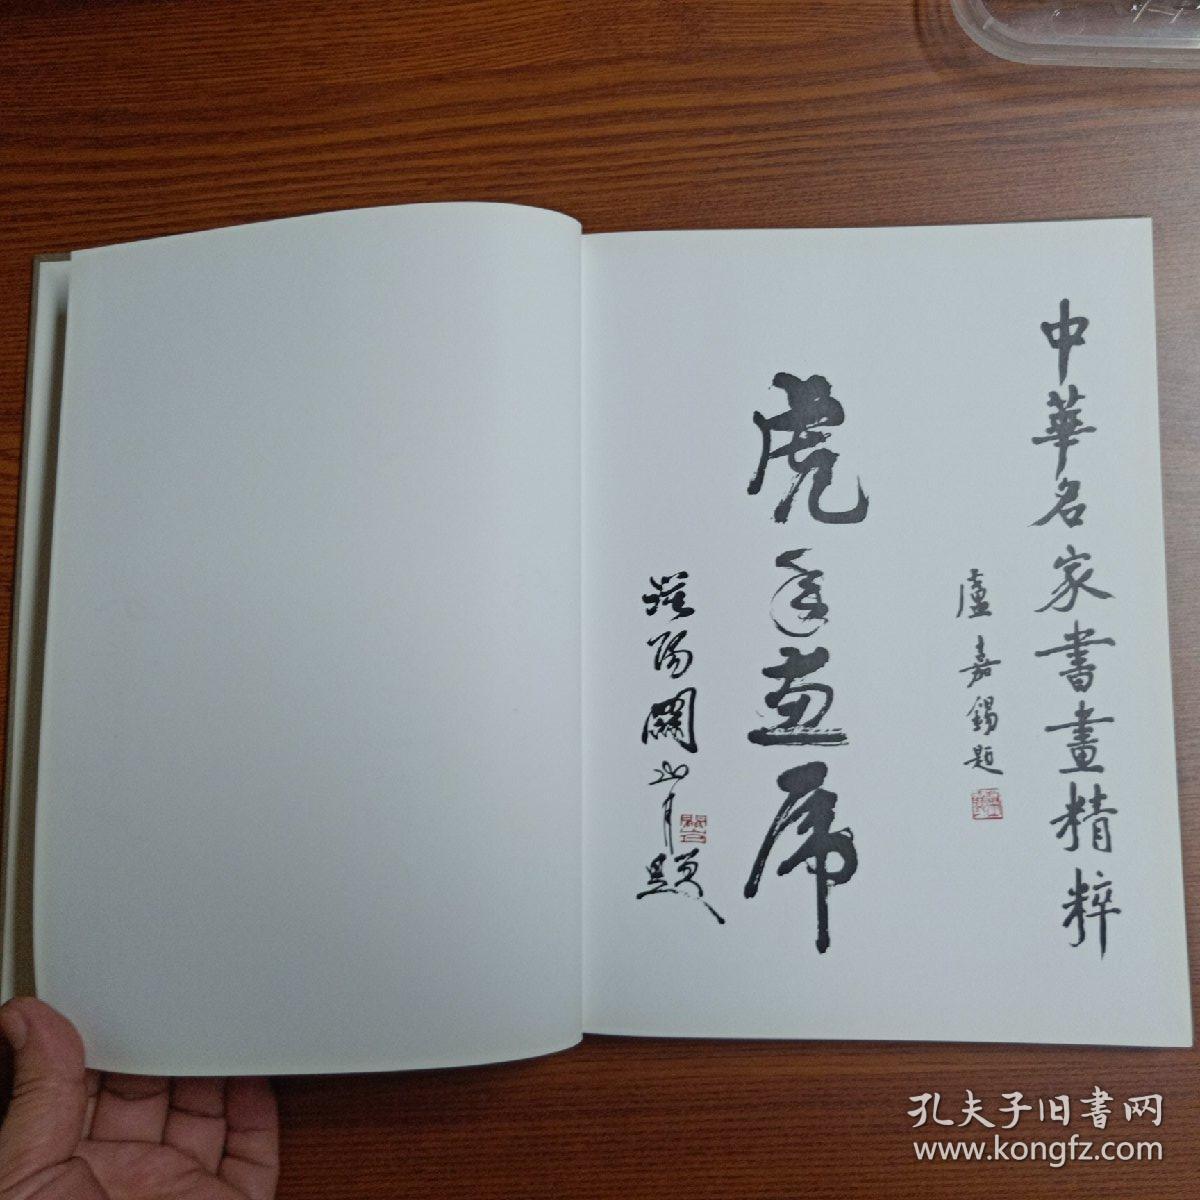 中華名家書畫精粹
盧嘉錫題
虎年畫虎
孔夫子旧書网
www.kongfz.com